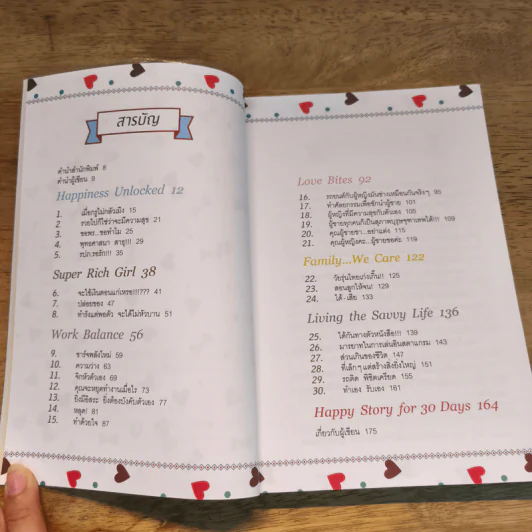 สารบัญ
คำนำสำนักพิมพ์ 8
คำนำผู้เขียน 9
Happiness Unlocked 12
1. เมื่อกรูไม่กลัวมึง 15
2. รวยไปก็ใช่ว่าจะมีความสุข 21
3. ขอพร..ขอทำไม 25
4. พุทธศาสนา สาธุ!!! 29
5. รปภ.รอรัก!!! 35
Super Rich Girl 38
6. จะใช้เงินตอนแก่เหรอ!!!??? 41
7. ปล่อยของ 47
8. ทำรังแต่พอตัว จะได้ไม่หัวบาน 51
Work Balance 56
9. ชาร์จพลังใหม่ 59
10. ความว่าง 63
11. จิกหัวตัวเอง 69
12. คุณจะหยุดทำงานเมื่อไร 73
13. ยิ่งมีอิสระ ยิ่งต้องบังคับตัวเอง 77
14. หลุด! 81
15. ทำด้วยใจ 87
Love Bites 92
16. รถยนต์กับผู้หญิงมันช่างเหมือนกันจริงๆ 95
17. ทำศัลยกรรมเพื่อชักนำผู้ชาย 101
18. ผู้หญิงที่มีความสุขกับตัวเอง 105
19. ผู้ชายทุกคนก็เป็นสุภาพบุรุษจุฑาเทพได้!!! 109
20. คุณผู้ชายขา...อย่าแต่ง 115
21. คุณผู้หญิงคะ..ผู้ชายขอค่ะ 119
Family...We Care 122
22. วัยรุ่นไทยเก่งเกิ๊น!! 125
23. สอนลูกให้จน! 129
24. ได้ - เสีย 133
Living the Savvy Life 136
25. ได้กันทางตัวหนังสือ!!! 139
26. มารยาทในการเล่นอินสตาแกรม 143
27. ส่วนเกินของชีวิต 147
28. ที่เล็กๆ แต่สร้างสิ่งยิ่งใหญ่ 151
29. รถติด พิชิตเครียด 155
30. ทำเอง รับเอง 161
Happy Story for 30 Days 164
เกี่ยวกับผู้เขียน 175